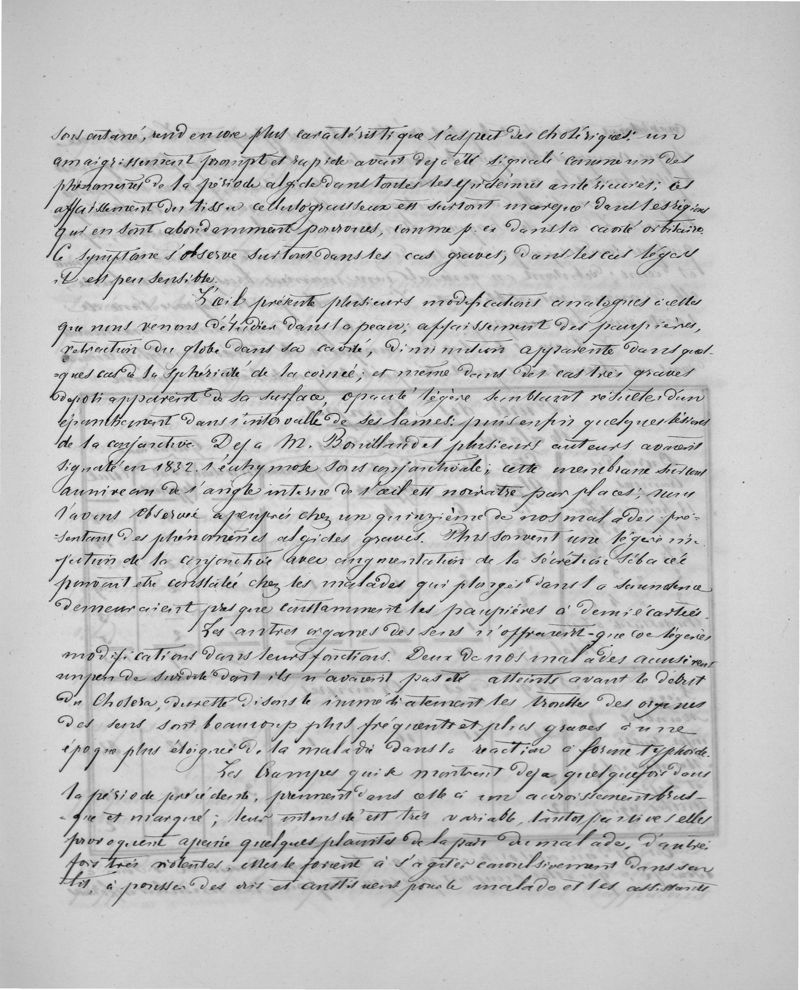 sous cutané, rend encore plus caractéristique l'aspect des cholériques: un
amaigrissement prompt et rapide avait déjà été signalé comme un des
phénomènes de la période algide dans toutes les épidémies antérieures; cet
affaissement du tissu cellulograisseux est surtout marqué dans les régions
qui en sont abondamment pourvues, comme p. ex dans la cavité orbitaire.
Ce symptôme s'observe surtout dans les cas graves, dans les cas légers
il est peu sensible.
L'œil présente plusieurs modifications analogues à celles
que nous venons d'étudier dans la peau; affaissement des paupières,
rétraction du globe dans sa cavité, diminution apparente dans quel-
-ques cas de la sphéricité de la cornée; et même dans des cas très graves
dépoli apparent de sa surface, opacité légère semblant résulter d'un
épanchement dans l'intervalle de ses lames: puis enfin quelques lésions
de la conjonctive Déjà M. Bouillaud et plusieurs auteurs avaient
signalé en 1832 l'échymose sous conjonctivale; cette membrane surtout
au niveau de l'angle interne de l'œil est noirâtre par places; nous
l'avons observé à peu près chez un quinzième de nos malades pré-
-sentant des phénomènes algides graves. Plus souvent une légère in-
-jection de la conjonctive avec augmentation de la sécrétion sébacée
pouvait être constatée chez les malades qui plongés dans la somnolence
demeuraient presque constamment les paupières à demi écartées.
Les autres organes des sens n'offraient que de légères
modifications dans leurs fonctions. Deux de nos malades accusèrent
un peu de surdité dont ils n'avaient pas été atteints avant le début
du Choléra, du reste disons le immédiatement les troubles des organes
des sens sont beaucoup plus fréquents et plus graves à une
époque plus éloignée de la maladie dans la réaction à forme typhoïde.
Les Crampes qui se montrent déjà quelquefois dans
la période précédente, prennent dans celle ci un accroissement brus-
-que et marqué; leur intensité est très variable, tantôt fugitives elles
provoquent à peine quelques plaintes de la part du malade, d'autres
fois très violentes, elles le forcent à s'agiter convulsivement dans son
lit, à pousser des cris et pour le malade et les assistants